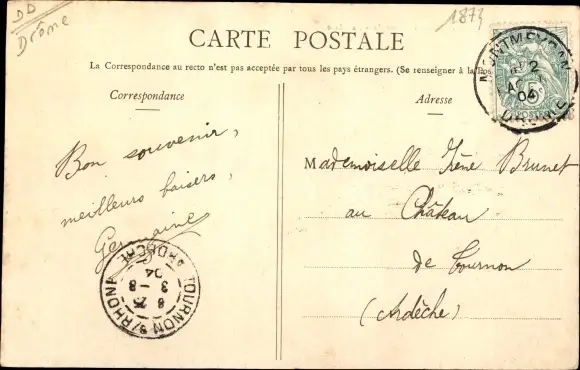 DD
Drôme
1873
CARTE POSTALE
La Correspondance au recto n'est pas acceptée par tous les pays étrangers. (Se renseigner à la Pos
Correspondance
Adresse
Bon souvenir,
meilleurs baisers,
Germaine
Mademoiselle Irène Brunet
au Château
de Tournon
(Ardèche)
MONTMEYRAN
2
04
DROME
POSTES
TOURNON S/RHONE
ARDECHE
6 25
3 - 8
04